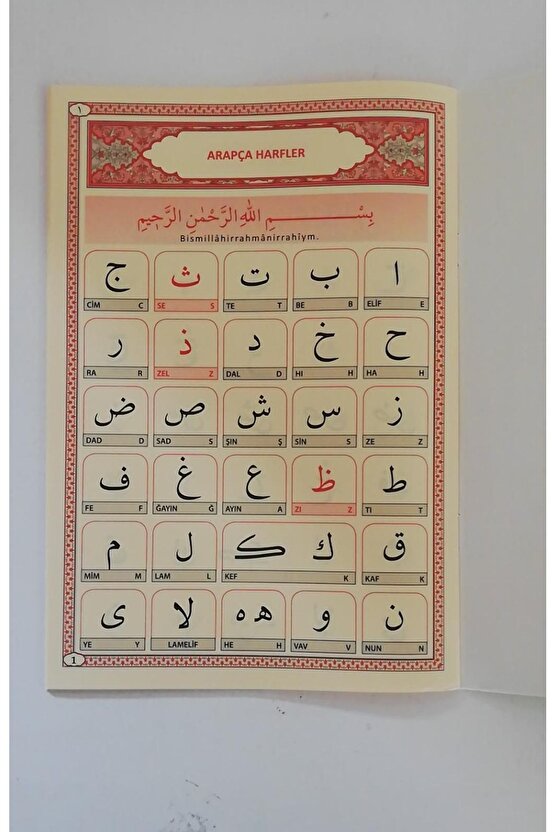 ١
ARAPÇA HARFLER
بِسْــــــمِ اللهِ الرَّحْمٰنِ الرَّحِيمِ
Bismillâhirrahmânirrahîym.
ا ب ت ث ج
CİM C SE S TE T BE B ELİF E
ح خ د ذ ر
RA R ZEL Z DAL D HI H HA H
ز س ش ص ض
DAD D SAD S ŞIN Ş SİN S ZE Z
ط ظ ع غ ف
FE F ĞAYIN Ğ AYIN A ZI Z TI T
ق ك ڪ ل م
MİM M LAM L KEF K KAF K
ن و ه ه لا ى
YE Y LAMELİF HE H VAV V NUN N
1